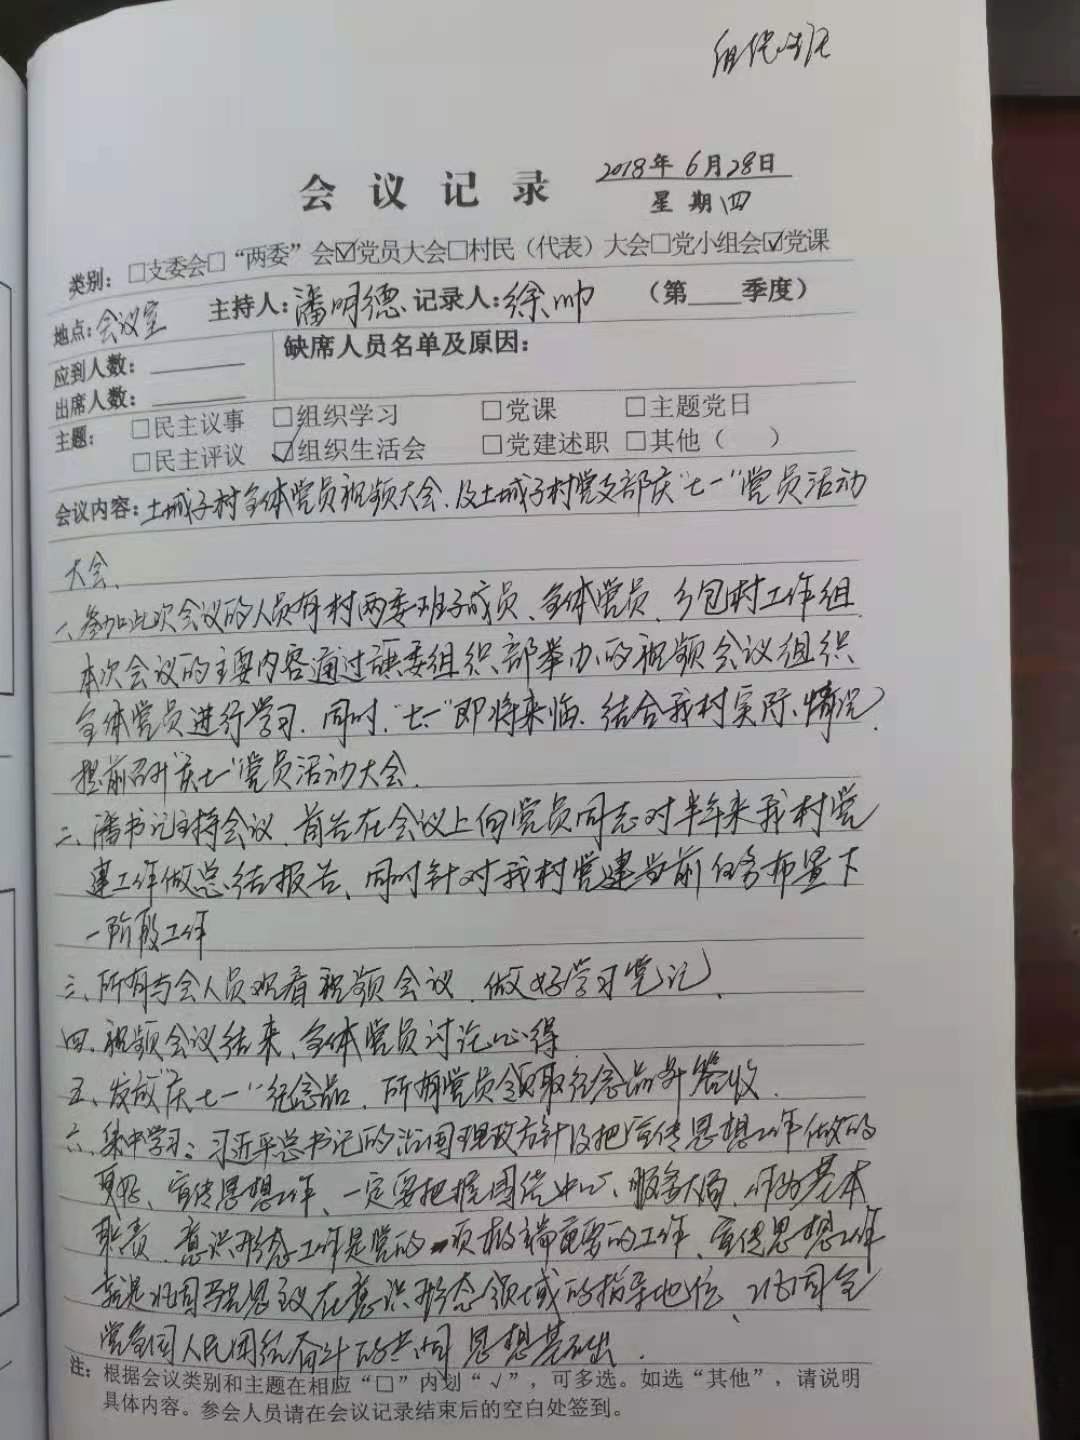 组织生活
2018年6月28日
会议记录
星期四
类别：□支委会□“两委”会☑党员大会□村民（代表）大会□党小组会☑党课
地点：会议室 主持人：潘明德 记录人：徐帅 （第____季度）
应到人数：______ 缺席人员名单及原因：
出席人数：______
主题： □民主议事 □组织学习 □党课 □主题党日
□民主评议 ☑组织生活会 □党建述职 □其他（ ）
会议内容：土城子村全体党员视频大会.及土城子村党支部庆“七一”党员活动
大会.
一、参加此次会议的人员有村两委班子成员、全体党员、乡包村工作组
本次会议的主要内容通过旗委组织部举办的视频会议组织
全体党员进行学习.同时.“七一”即将来临.结合我村实际情况
提前召开“庆七一”党员活动大会.
二、潘书记主持会议.首先在会议上向党员同志对半年来我村党
建工作做总结报告、同时针对我村党建当前任务布置下
一阶段工作
三、所有与会人员观看视频会议.做好学习笔记.
四.视频会议结束、全体党员讨论心得
五、发放“庆七一”纪念品.所有党员领取纪念品并签收.
六、集中学习：习近平总书记的治国理政方针及把宣传思想工作做的
更好、宣传思想工作、一定要把握围绕中心、服务大局.作为基本
职责.意识形态工作是党的一项极端重要的工作、宣传思想工作
就是巩固马克思主义在意识形态领域的指导地位、巩固全
党全国人民团结奋斗的共同思想基础.
注：根据会议类别和主题在相应“□”内划“√”，可多选。如选“其他”，请说明
具体内容。参会人员请在会议记录结束后的空白处签到。